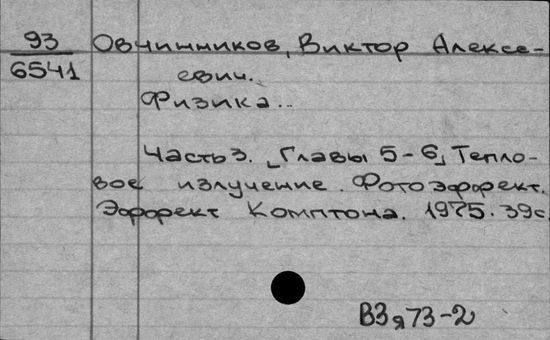 93 Овчинников, Виктор Алексе-
6541 евич.
Физика...
Часть 3. [Главы 5-6] Тепло-
вое излучение. Фотоэффект.
Эффект Комптона. 1975. 39с.
В3я73-2